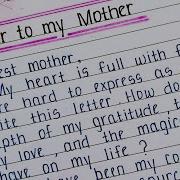 r to my Mother
est mother,
My heart is full with f
re hard to express as
ite this letter. How do
pth of my gratitude, t
y love, and the magic
have on my life ?
have been my co